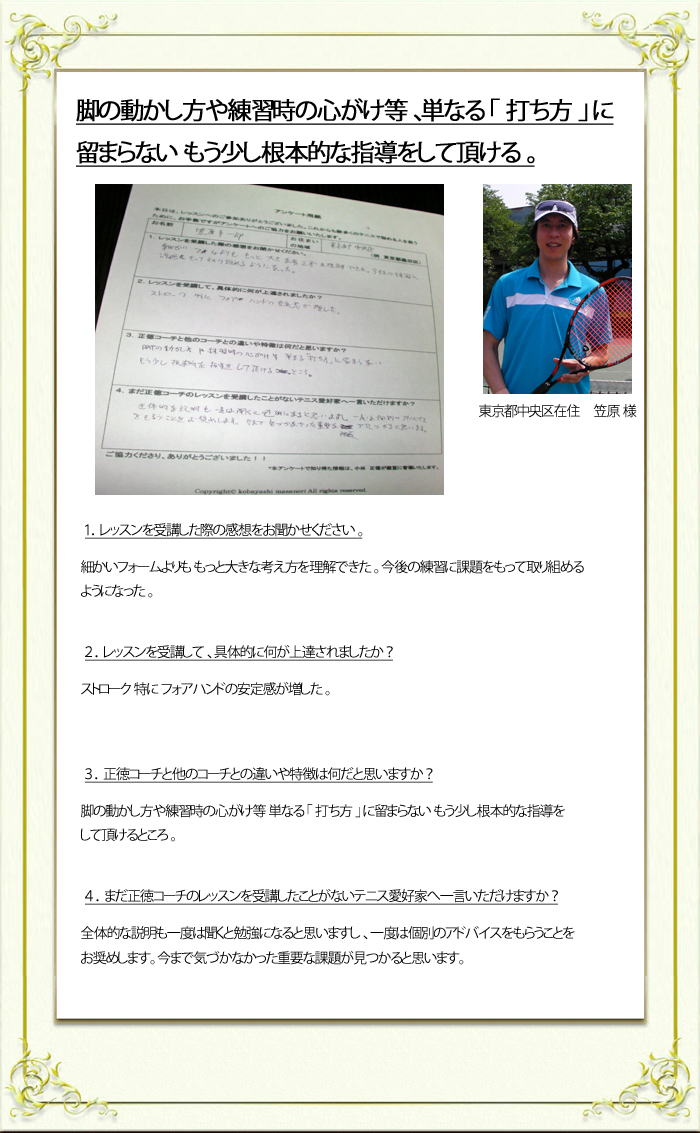 脚の動かし方や練習時の心がけ等、単なる「 打ち方 」に
留まらない もう少し根本的な指導をして頂ける。
アンケート用紙
本日は、レッスンへのご参加ありがとうございました。これからも
お名前
お住まいの地域
1. レッスンを受講した際の感想をお聞かせください。
2. レッスンを受講して、具体的に何が上達されましたか？
ストローク 特に フォアハンドの安定感が増した。
3. 正徳コーチと他のコーチとの違いや特徴は何だと思いますか？
脚の動かし方や練習時の心がけ等 単なる「打ち方」に留まらない
もう少し 根本的な 指導を して頂ける ところ。
4. まだ正徳コーチのレッスンを受講したことがないテニス愛好家へ一言いただけますか？
ご協力くださり、ありがとうございました！！
*本アンケートで知り得た情報は、小林 正徳が厳重に管理いたします。
Copyright© kobayashi masanori All rights reserved.
東京都中央区在住　笠原 様
1. レッスンを受講した際の感想をお聞かせください。
細かいフォームよりも もっと大きな考え方を理解できた。今後の練習に課題をもって取り組める
ようになった。
２．レッスンを受講して、具体的に何が上達されましたか？
ストローク 特に フォアハンドの安定感が増した。
３．正徳コーチと他のコーチとの違いや特徴は何だと思いますか？
脚の動かし方や練習時の心がけ等 単なる「 打ち方 」に留まらない もう少し根本的な指導を
して頂けるところ。
４．まだ正徳コーチのレッスンを受講したことがないテニス愛好家へ一言いただけますか？
全体的な説明も一度は聞くと勉強になると思いますし、一度は個別のアドバイスをもらうことを
お奨めします。今まで気づかなかった重要な課題が見つかると思います。